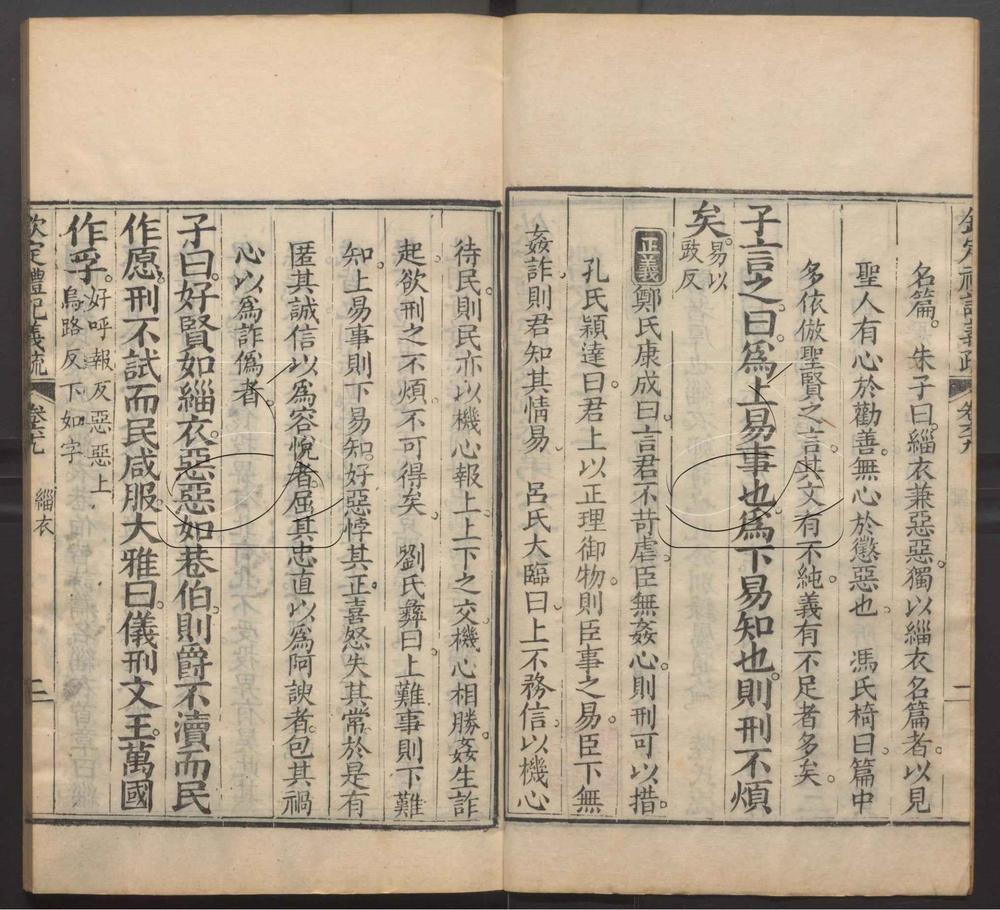 欽定禮記義疏 卷六十九 一
名篇。朱子曰緇衣兼惡惡獨以緇衣名篇者以見
聖人有心於勸善無心於懲惡也 馮氏椅曰篇中
多依倣聖賢之言其文有不純義有不足者多矣
子言之曰為上易事也為下易知也則刑不煩
矣易以豉反
正義鄭氏康成曰言君不苛虐臣無姦心則刑可以措
孔氏穎達曰君上以正理御物則臣事之易臣下無
姦詐則君知其情易 呂氏大臨曰上不務信以機心
待民則民亦以機心報上上下之交機心相勝姦生詐
起欲刑之不煩不可得矣 劉氏彝曰上難事則下難
知上易事則下易知好惡悖其正喜怒失其常於是有
匿其誠信以為容悅者屈其忠直以為阿諛者包其禍
心以為詐偽者
子曰好賢如緇衣惡惡如巷伯則爵不瀆而民
作愿刑不試而民咸服大雅曰儀刑文王萬國
作孚好呼報反惡惡上烏路反下如字
欽定禮記義疏 緇衣 二